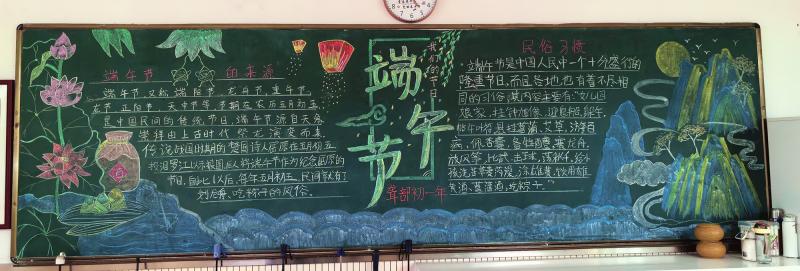 端午节 的来源
端午节,又称端阳节、龙舟节、重午节、
龙节、正阳节、天中节等,节期在农历五月初五,
是中国民间的传统节日。端午节源自天象
崇拜由上古时代祭龙演变而来
传说战国时期的楚国诗人屈原在五月初五
投汨罗江
端午节作为纪念屈原的
节日。自此以后,每年五月初五,民间就有了
划龙舟、吃粽子的风俗。
我们的节日
端午节
聋部初一年
民俗习惯
"端午节是中国人民中一个十分盛行的
隆重节日,而且各地也有着不尽相
同的习俗,其内容主要有:女儿回
娘家,挂钟馗像,迎鬼船、躲午,
帖午叶符,悬挂菖蒲、艾草,游百
病,佩香囊,备牲醴,赛龙舟,
放风筝,比武,击球,荡秋千,给小
孩涂雄黄,饮用雄
黄酒、菖蒲酒,吃粽子。"